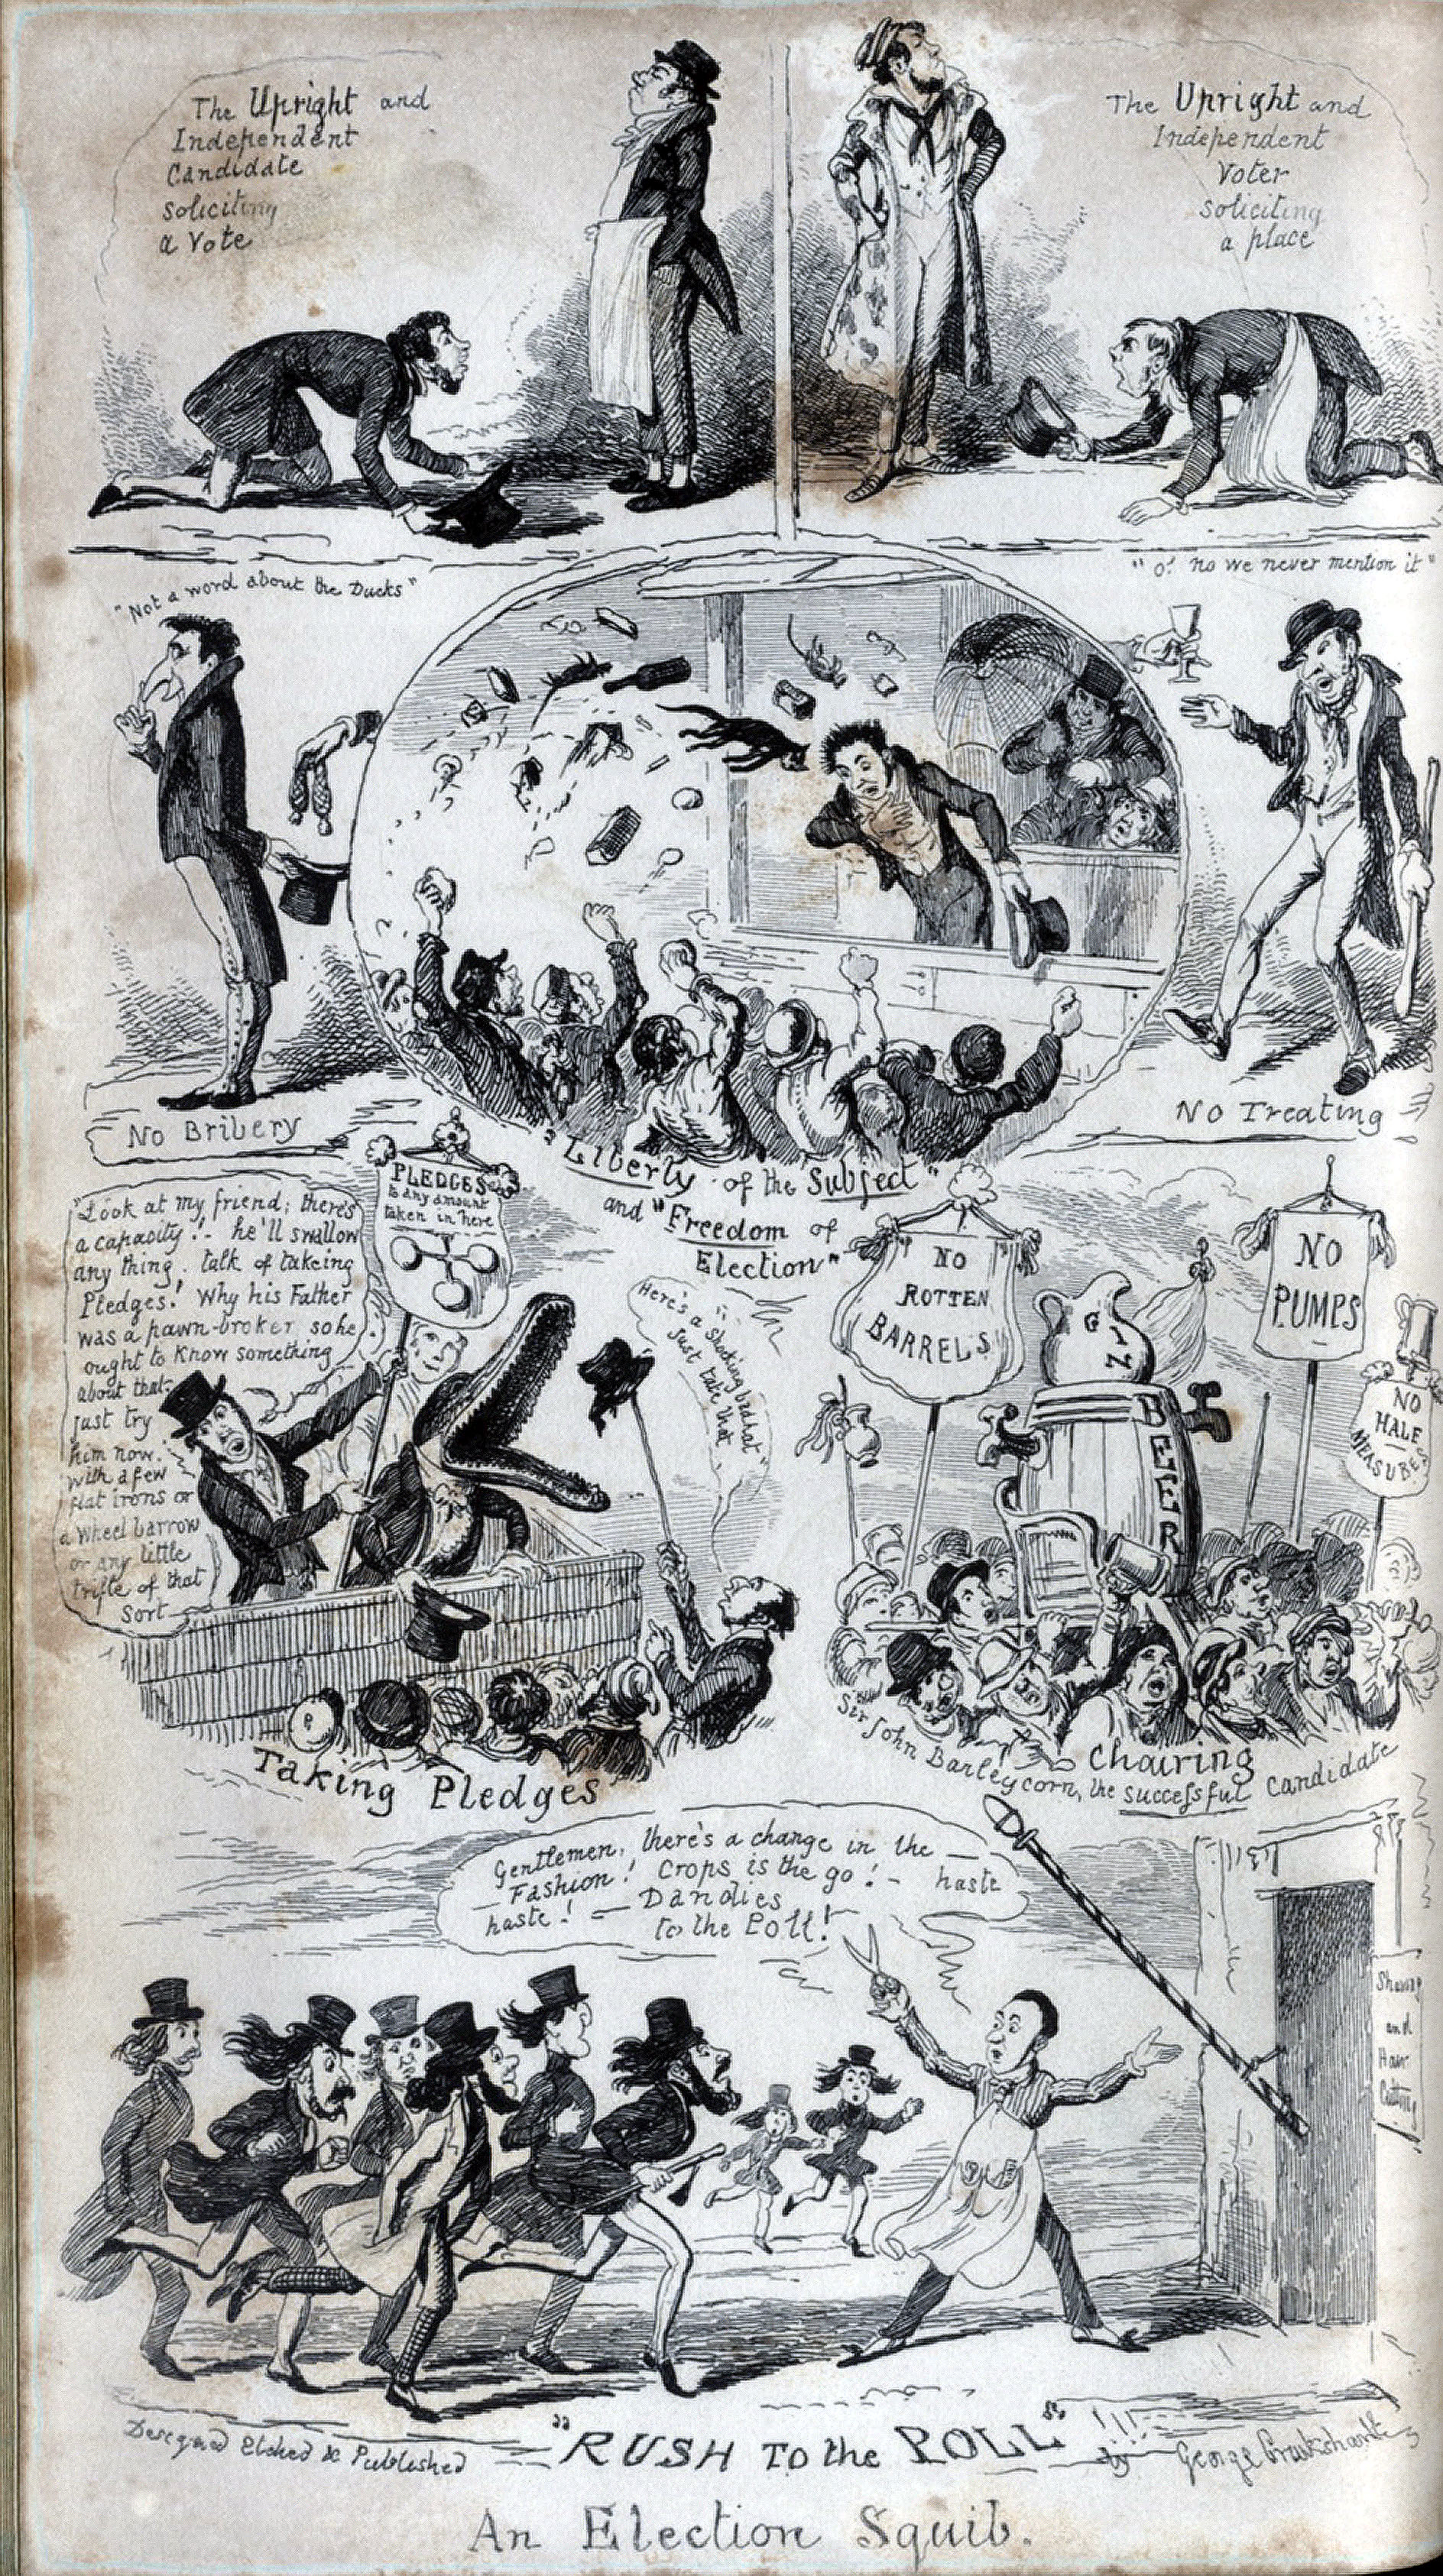 The Upright and
Independent
Candidate
soliciting
a Vote
The Upright and
Independent
Voter
soliciting
a place
"Not a word about the Ducks"
"O! no we never mention it"
No Bribery
No Treating
"Liberty of the Subject"
and "Freedom of
Election"
"Look at my friend; there's
a capacity!- he'll swallow
any thing. talk of takeing
Pledges! Why his Father
was a pawn-broker, so he
ought to know something
about that-
just try
him now.
with a few
flat irons or
a wheel barrow
or any little
trifle of that
sort
PLEDGES
to any amount
taken in here
Here's a "shocking bad hat"
just take that
NO
ROTTEN
BARRELS
GIN
BEER
NO
PUMPS
NO
HALF
MEASURES
Taking Pledges
Chairing
Sir John Barleycorn, the successful Candidate
Gentlemen, there's a change in the
Fashion! Crops is the go! - haste
haste! - Dandies
to the Poll!
Shaving
and
Hair
Cutting
"RUSH To the POLL"!!!
Designed Etched & Published
by George Cruikshank
An Election Squib.